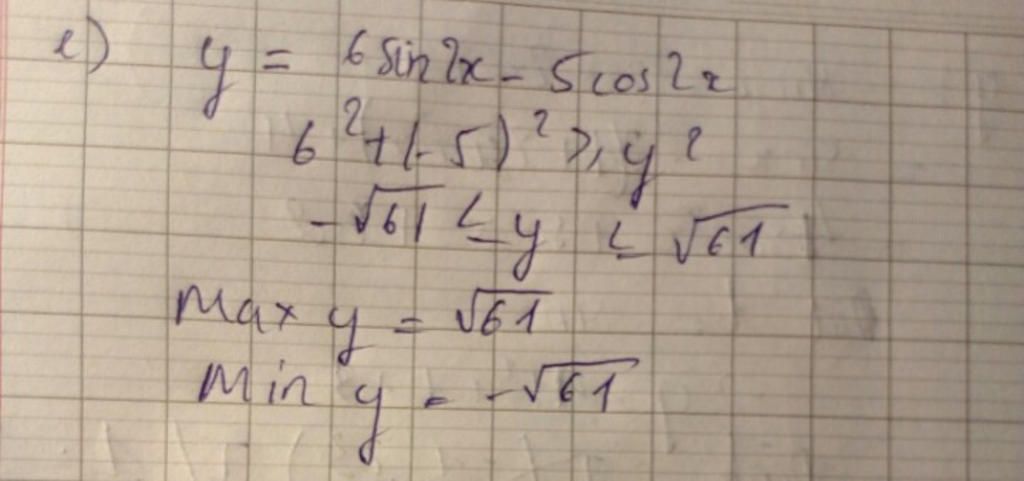 e) y = 6 sin2x - 5cos2x
6² + (-5)² ≥ y²
-√61 ≤ y ≤ √61
Max y = √61
Min y = -√61